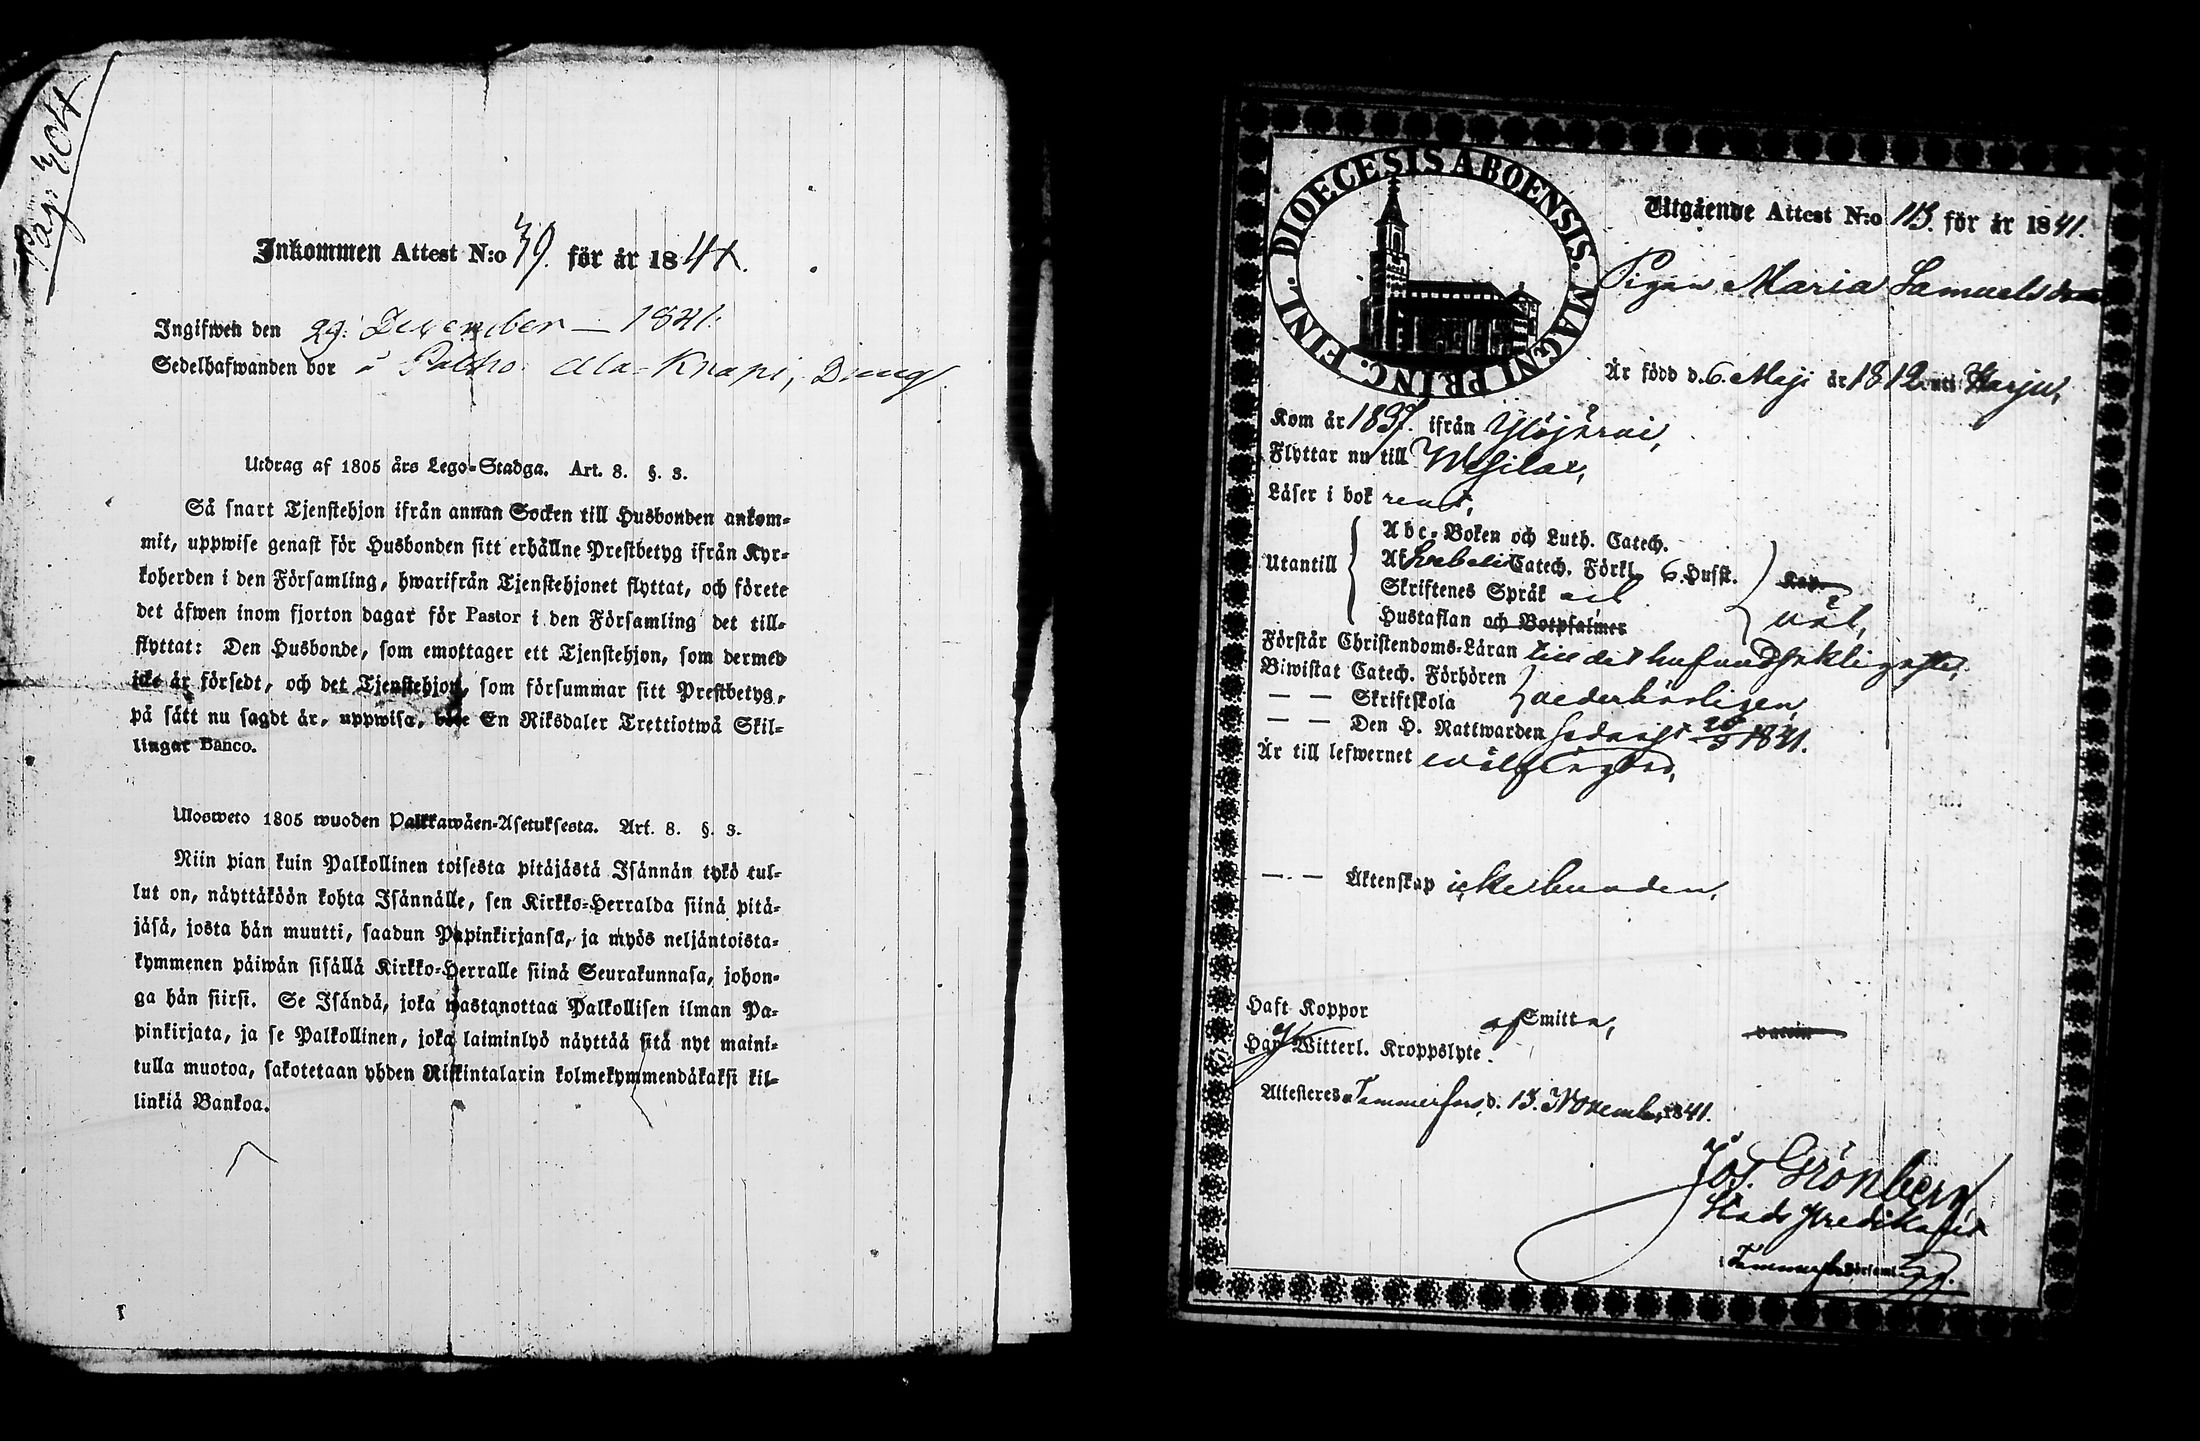 Pag. 304
Inkommen Attest N:o 39. för år 184
Ingifwen den 29. December 1841.
Sedelhafwanden bor i Palho Ala-Knapi, Dreng
Utdrag af 1805 års Lego-Stadga. Art. 8. §. 3.
Så snart Tjenstehjon ifrån annan Socken till Husbonden ankom-
mit, uppwise genast för Husbonden sitt erhållne Prestbetyg ifrån Kyr-
koherden i den Församling, hwarifrån Tjenstehjonet flyttat, och förete
det äfwen inom fjorton dagar för Pastor i den Församling det till-
flyttat: Den Husbonde, som emottager ett Tjenstehjon, som dermed
icke är försedt, och det Tjenstehjon, som försummar sitt Prestbetyg,
på sätt nu sagdt är, uppwisa, böte En Riksdaler Trettiotwå Skil-
lingar Banco.
Ulosweto 1805 wuoden Palkkawäen-Asetuksesta. Art. 8. §. 3.
Niin pian kuin Palkollinen toisesta pitäjästä Isännän tykö tul-
lut on, näyttäköön kohta Isännälle, sen Kirkko-Herralda siinä pitä-
jäsä, josta hän muutti, saadun Papinkirjansa, ja myös neljäntoista-
kymmenen päiwän sisällä Kirkko-Herralle siinä Seurakunnasa, johon-
ga hän siirsi. Se Isändä, joka wastanottaa Palkollisen ilman Pa-
pinkirjata, ja se Palkollinen, joka laiminlyö näyttää sitä nyt maini-
tulla muotoa, sakotetaan yhden Riikintalarin kolmekymmendäkaksi kil-
linkiä Bankoa.
DIOECESIS ABOENSIS. MAGNI PRINC. FINL.
Utgående Attest N:o 113. för år 1841.
Pigan Maria Samuelsdr
Är född d. 6. Maji år 1812 uti Harju,
Kom år 1837. ifrån Ylöjärvi,
Flyttar nu till Wesilax,
Läser i bok rent,
Utantill
Abc-Boken och Luth. Catech.
Af Svebelii Catech. Förkl. o. Husst.
Skriftenes Språk
Hustaflan och Botpsalmer
väl,
Förstår Christendoms-Läran till det hufvudsakligaste,
Biwistat Catech. Förhören
— — Skriftskola
vederbörligen,
— — Den H. Nattwarden sednast 26/9 1841.
Är till lefwernet wälfrägdad,
— — Äktenskap icke bunden,
Haft Koppor af Smitta, vaccin
Har ej Witterl. Kroppslyte.
Attesteres Tammerfors, d. 13. November 1841.
Jos. Grönberg,
Stads predikant
i Tammerfors Församling.